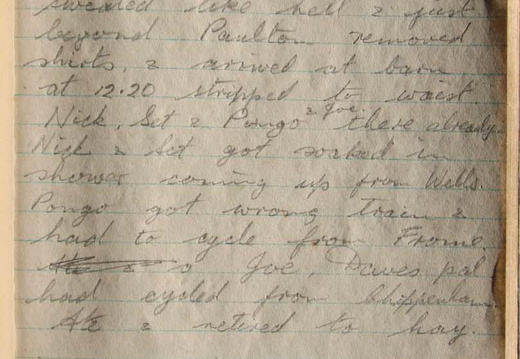 sweated like hell & just
beyond Paulton removed
shirts, & arrived at barn
at 12.20 stripped to waist
Nick, Set & Pongo & Joe. there already.
Nick & Set got soaked in
shower coming up from Wells.
Pongo got wrong train &
had to cycle from Frome.
Joe, Daves pal
had cycled from Chippenham.
Ate & retired to hay.